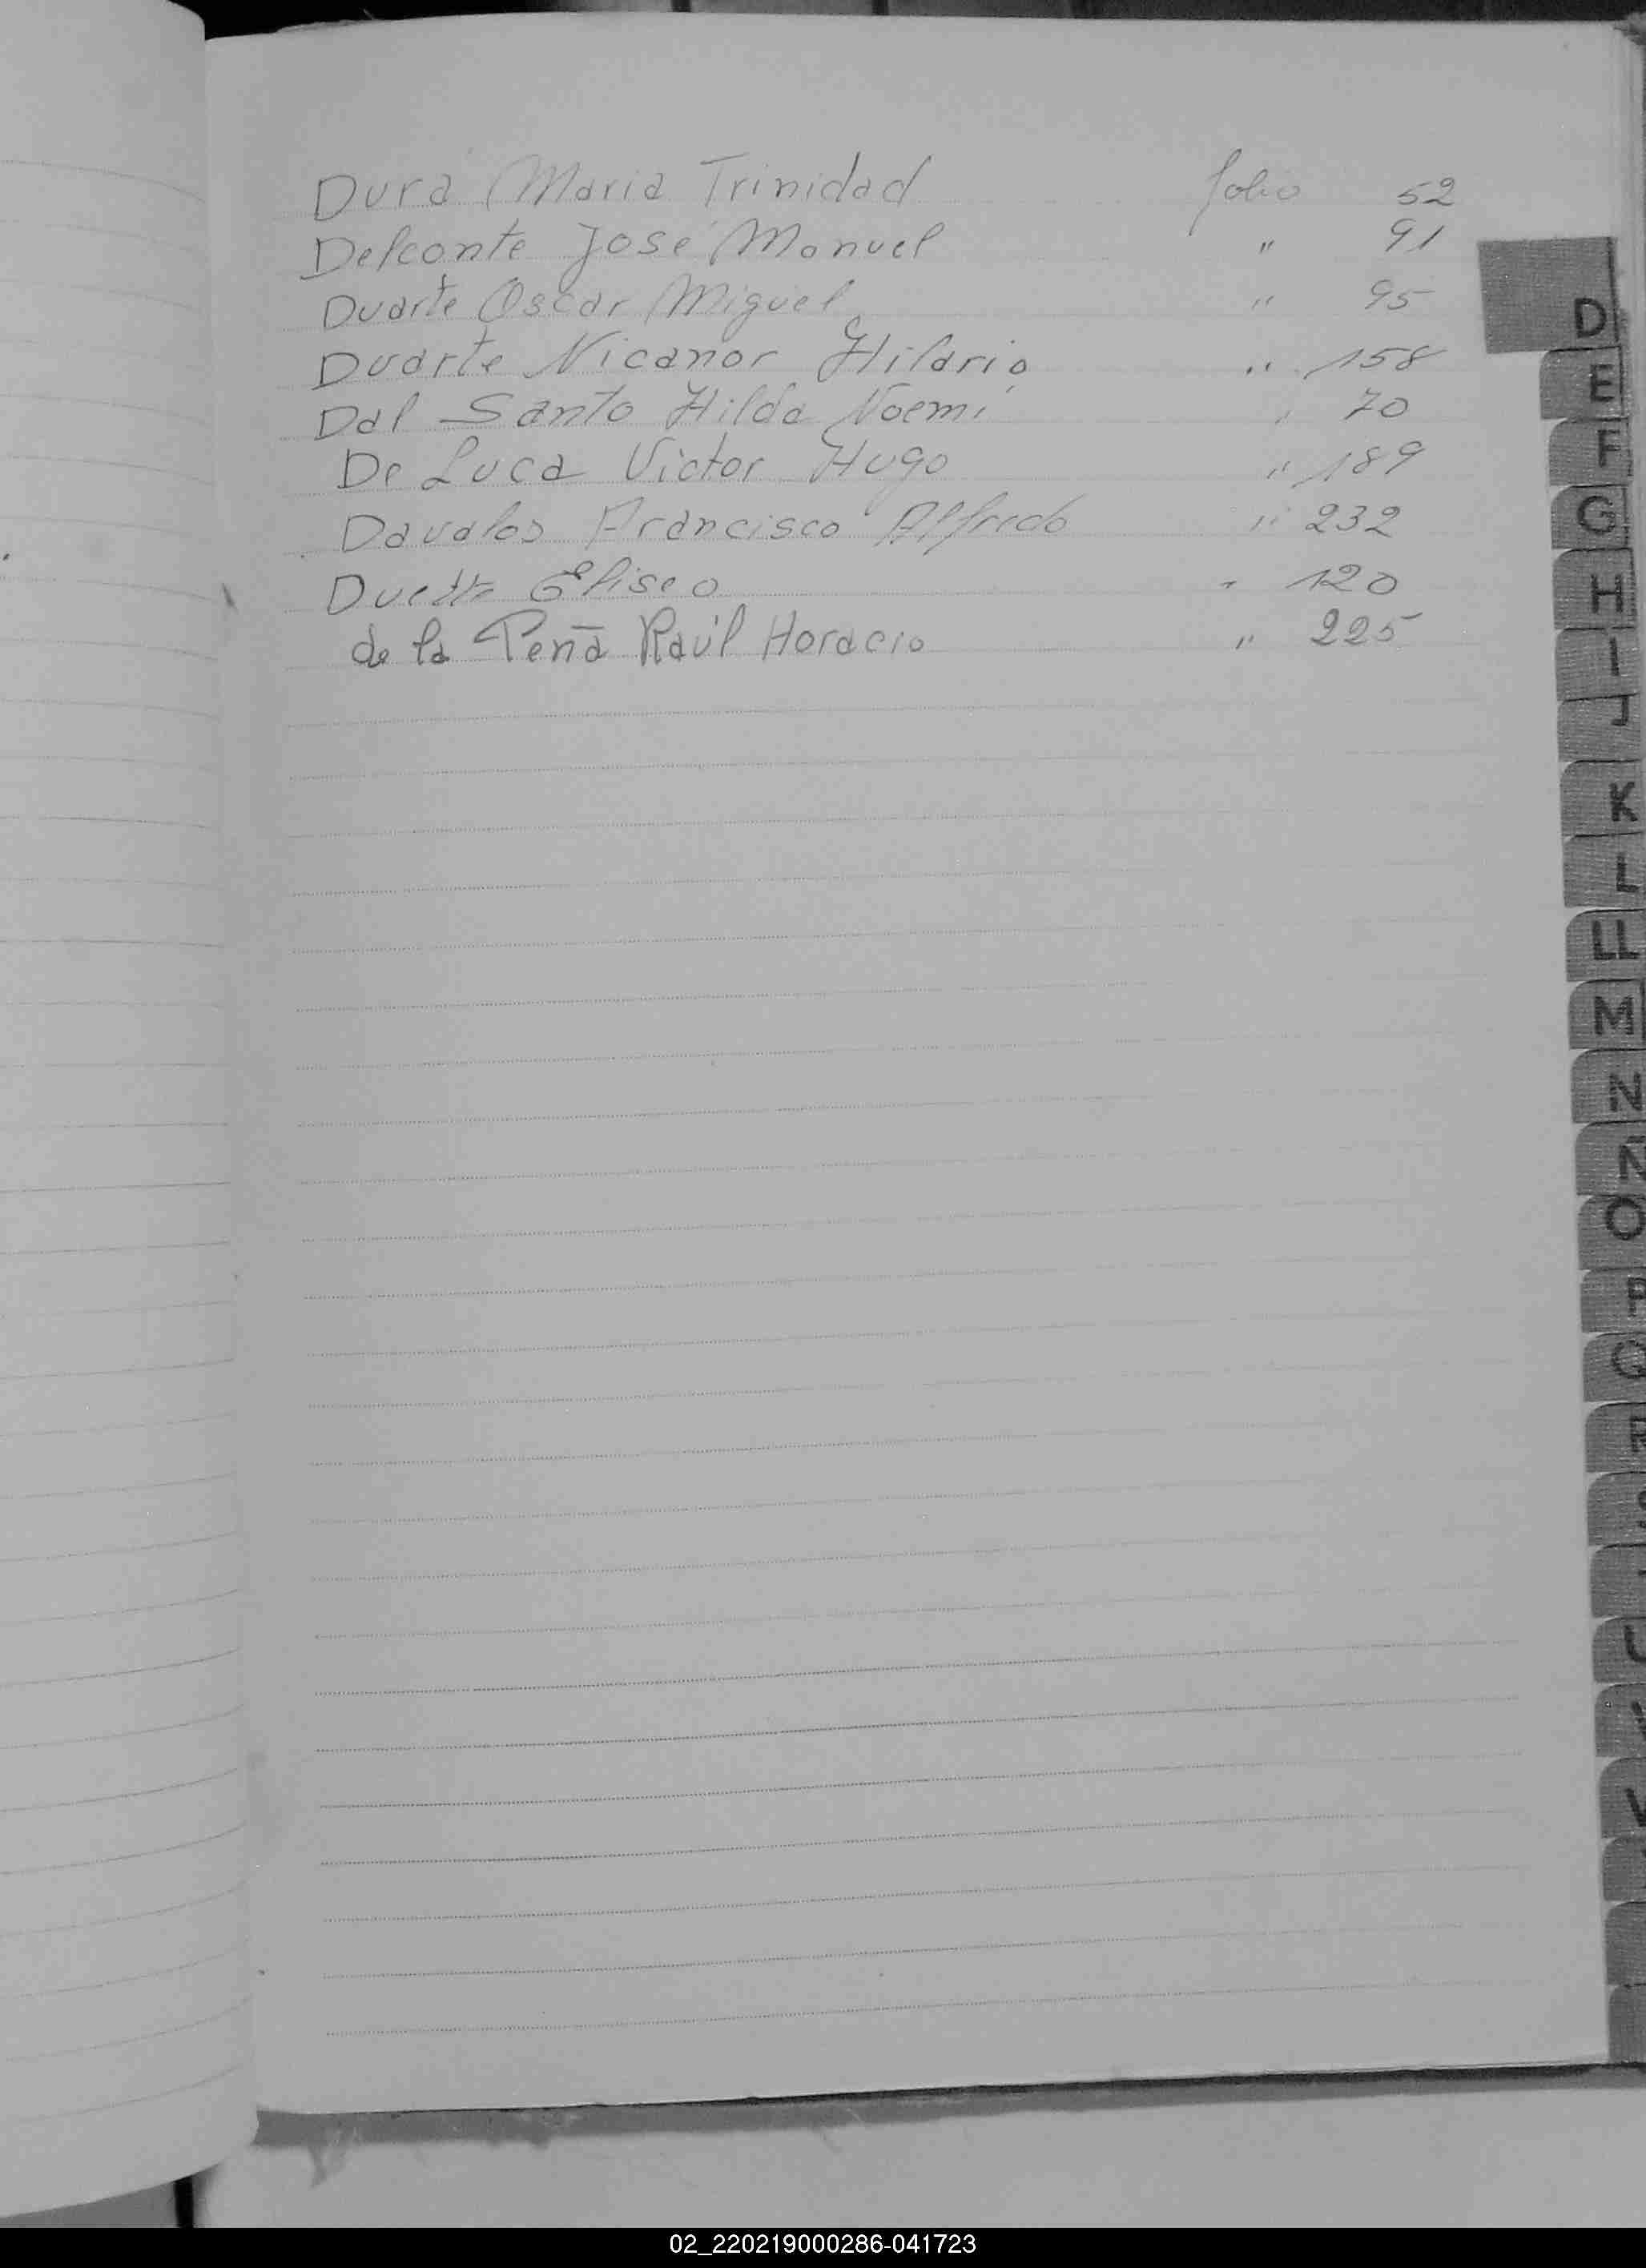 Dura Maria Trinidad folio 52
Delconte José Manuel " 91
Duarte Oscar Miguel " 95
Duarte Nicanor Hilario " 158
Dal Santo Hilda Noemí " 70
De Luca Victor Hugo " 189
Davalos Francisco Alfredo " 232
Eliseo " 120
de la Peña Raúl Horacio " 225
D
E
F
G
H
I
J
K
L
LL
M
N
Ñ
O
P
Q
R
02_220219000286-041723